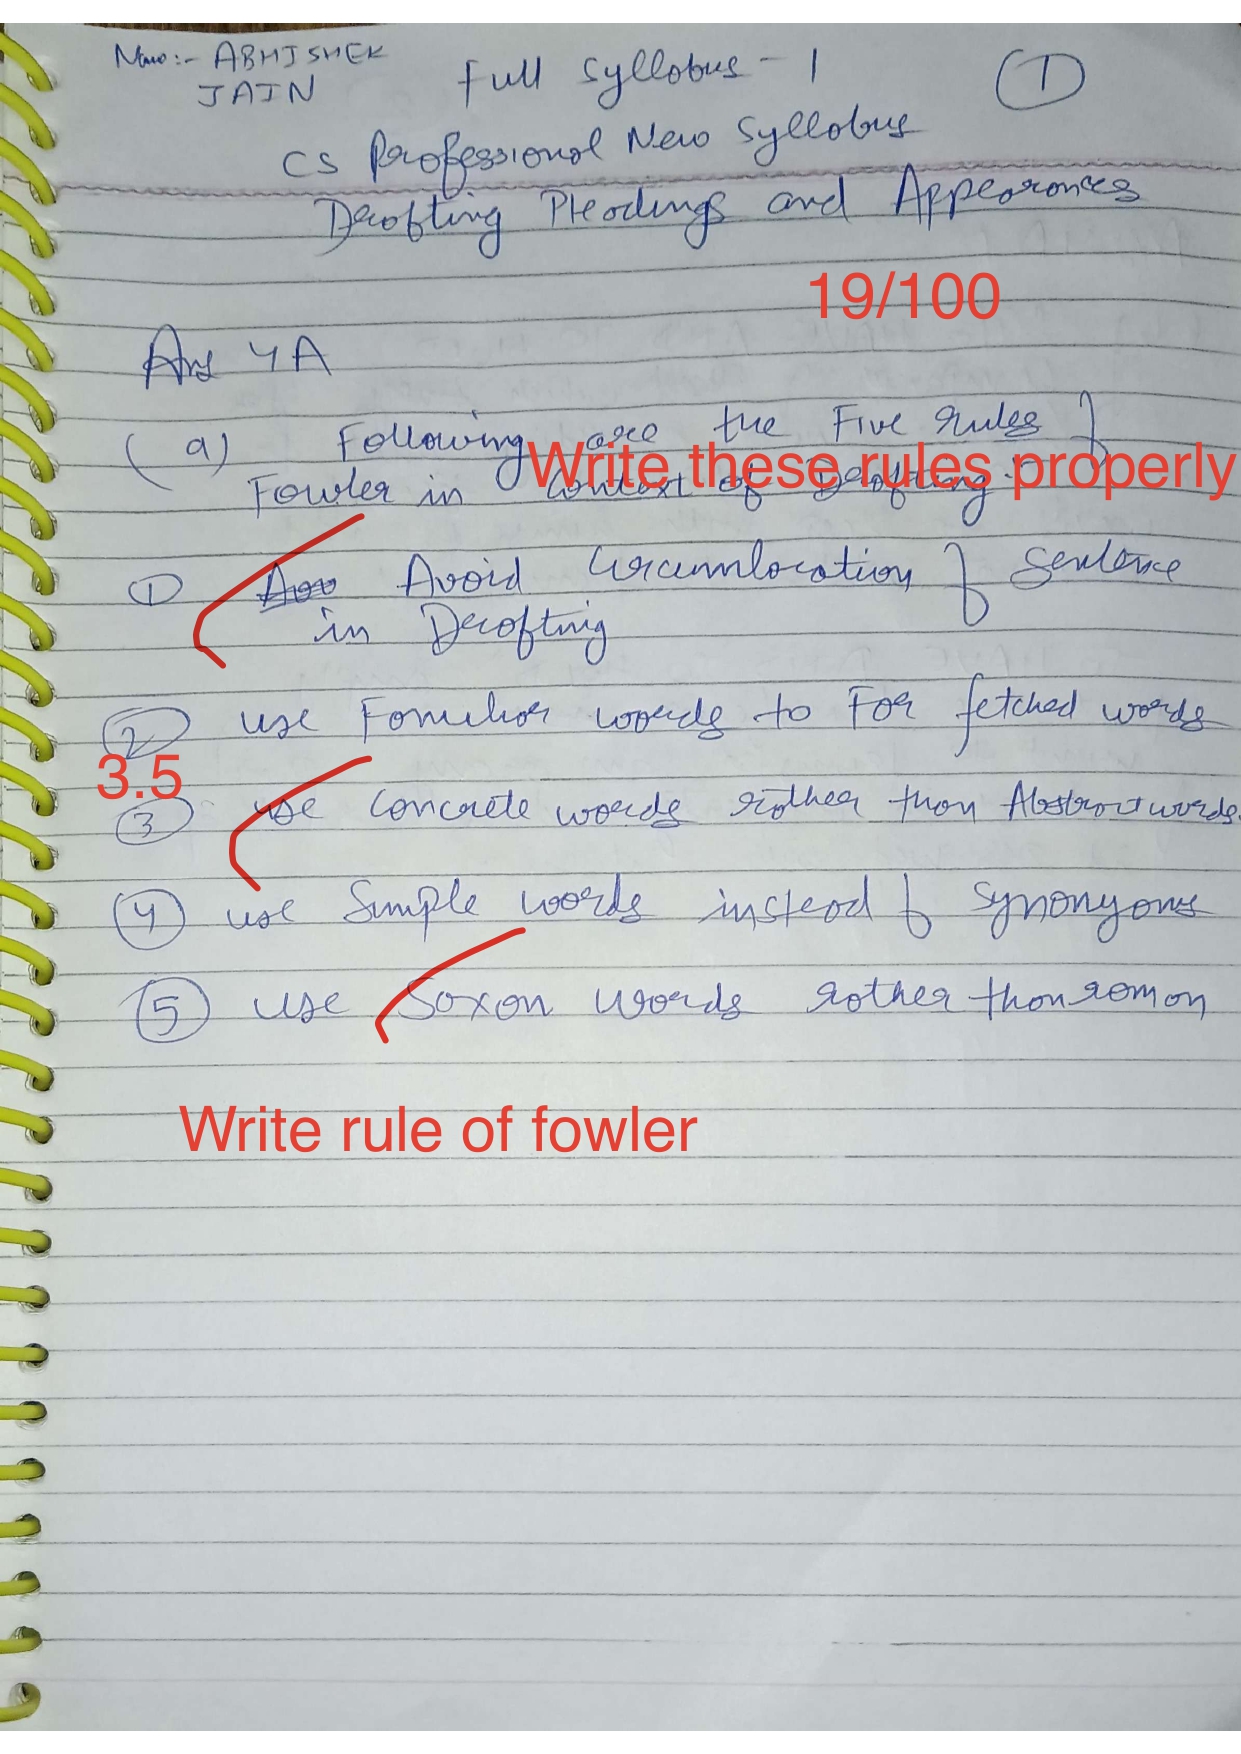 Name:- ABHISHEK
JAIN
Full Syllobus - 1
1
CS Professional New Syllobus
Drafting Pleadings and Appearances
19/100
Ans 4A
(a) Following are the Five rules of
Write these rules properly
Fowler in context of Drafting.
① Avoid Circumlocation of Sentence
in Drafting
② use Familiar words to Far fetched words
3.5
③ use Concrete words rather than Abstract words.
④ use Simple words instead of Synonyoms
⑤ use Saxon words rather than roman
Write rule of fowler